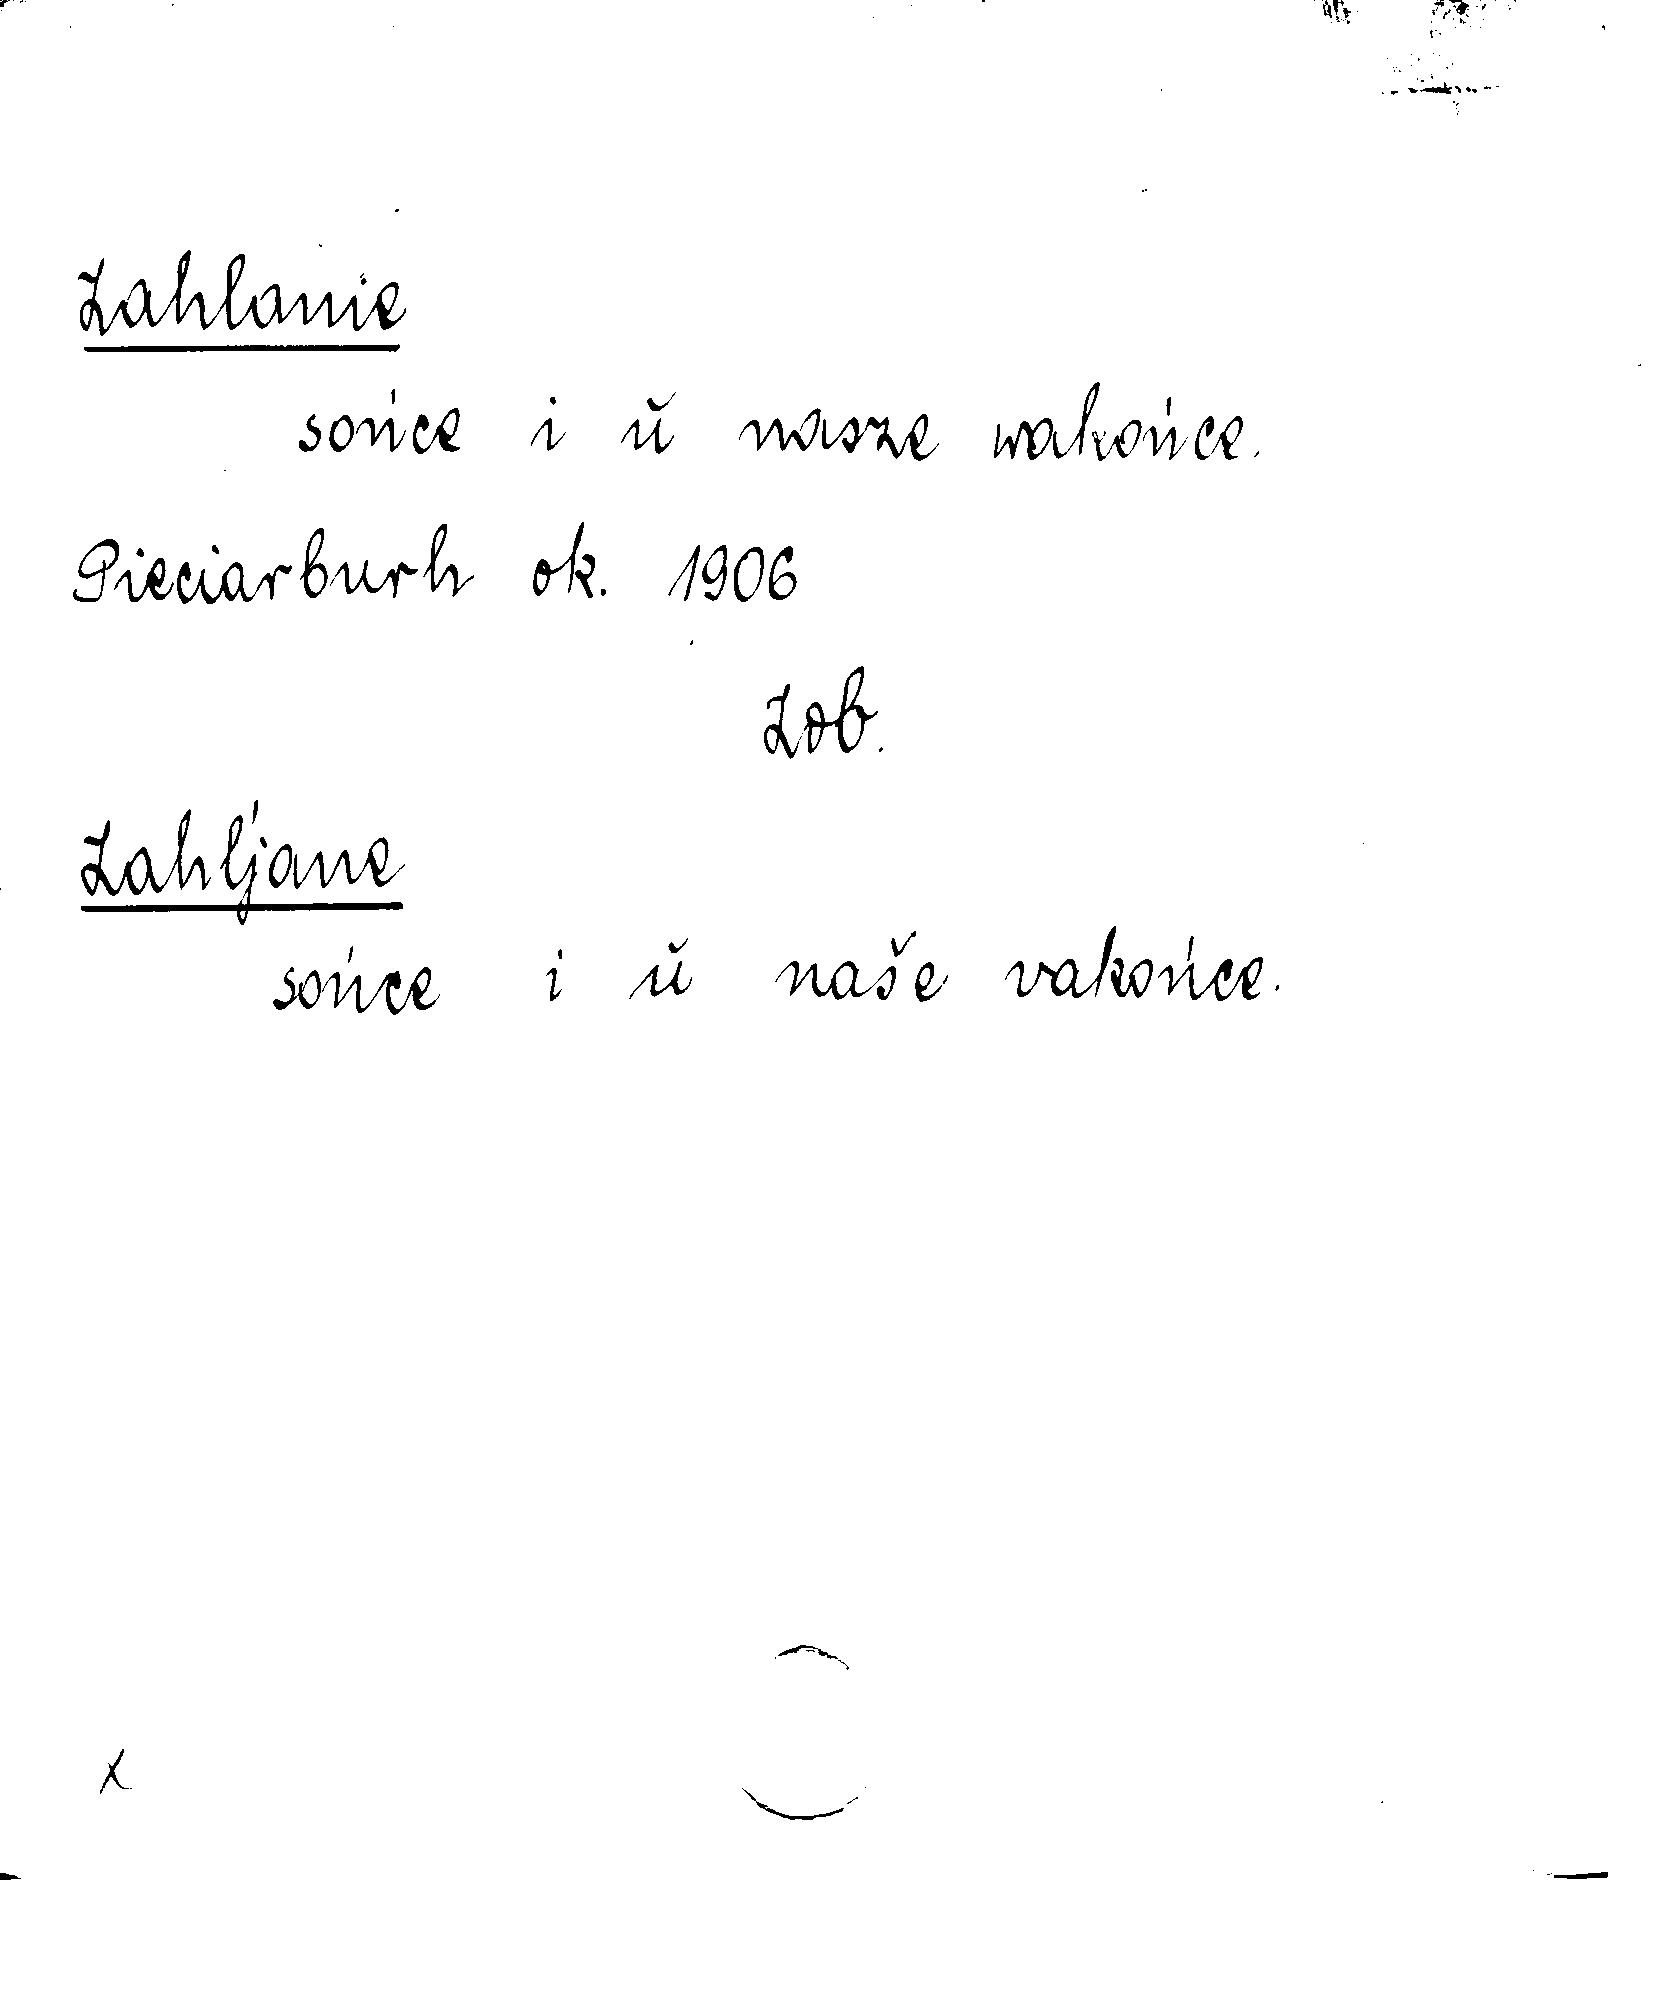 Zahlanie
sońce i ŭ nasze wakońce.
Pieciarburh ok. 1906
Zob.
Zahl'jane
sońce i ŭ naše vakońce.
x